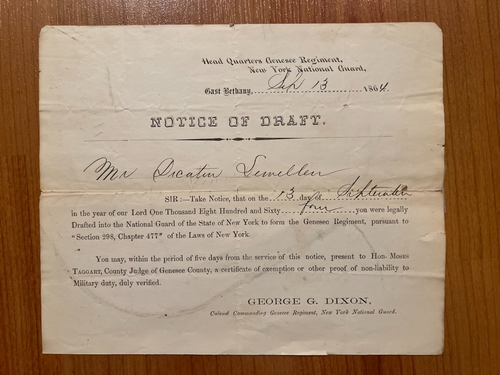 Head Quarters Genesee Regiment,
New York National Guard,
East Bethany, Sep 13 1864.
NOTICE OF DRAFT.
Mr Lewellen
SIR:—Take Notice, that on the 13 day of September
in the year of our Lord One Thousand Eight Hundred and Sixty four you were legally
Drafted into the National Guard of the State of New York to form the Genesee Regiment, pursuant to
"Section 298, Chapter 477" of the Laws of New York.
You may, within the period of five days from the service of this notice, present to Hon. Moses
Taggart, County Judge of Genesee County, a certificate of exemption or other proof of non-liability to
Military duty, duly verified.
GEORGE G. DIXON,
Colonel Commanding Genesee Regiment, New York National Guard.